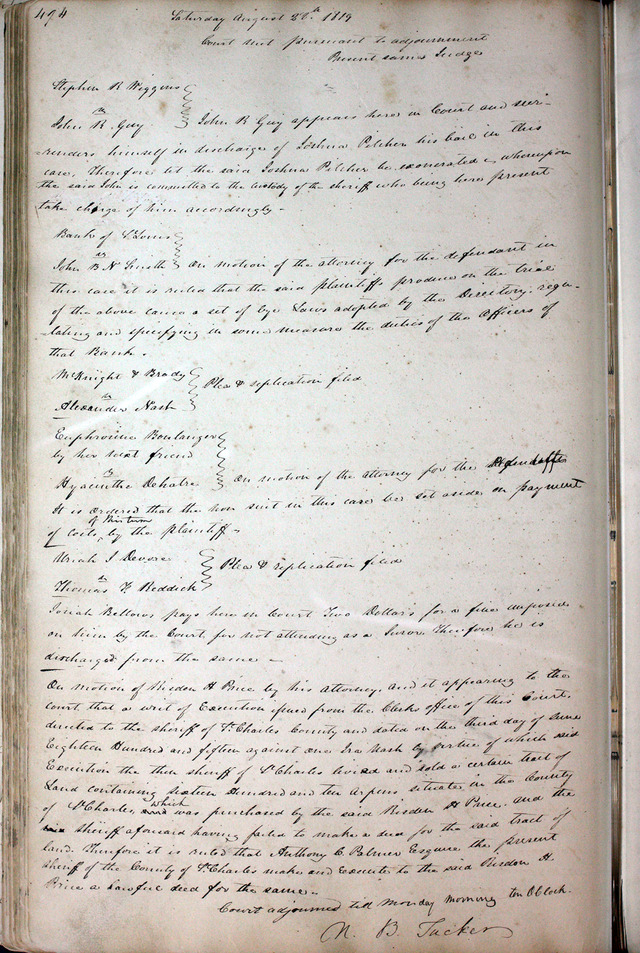 494
Saturday August 28th 1819
Court met pursuant to adjournment
Present same Judge
Stephen R Wiggins
vs
John R. Guy } John R Guy appears here in Court and surr-
renders himself in discharge of Joshua Pilcher his bail in this
case, Therefore let the said Joshua Pilcher be exonerated & whereupon
the said John is committed to the custody of the sheriff who being here present
take charge of him accordingly -
Bank of St Louis
vs
John B N Smith } On motion of the attorney for the defendant in
this case it is ruled that the said plaintiffs produce on the trial
of the above cause a set of bye Laws adopted by the Directory, regu-
lating and specifying in some measure the duties of the officers of
that Bank.
McKnight & Brady
vs
Alexander Nash } Plea & replication filed
Euphrosine Boulanger
by her next friend
vs
Hyacinthe Dehatre } On motion of the attorney for the
It is ordered that the non suit in this case be set aside on payment
of costs, of this term by the plaintiff -
Uriah J Devore
vs
Thomas F. Reddick } Plea & replication filed
Josiah Bellows pays here in Court Two Dollars for a fine imposed
on him by the Court for not attending as a Juror. Therefore he is
discharged from the same -
On motion of Risdon H Price by his attorney, and it appearing to the
Court that a writ of Execution issued from the Clerks office of this Court,
directed to the sheriff of St Charles County and dated on the third day of June
Eighteen Hundred and fifteen against one Ira Nash by virtue of which said
Execution the then sheriff of St Charles levied and sold a certain tract of
Land containing sixteen Hundred and ten Arpens situate in the County
of St Charles, which was purchased by the said Risdon H Price. and the
sheriff aforesaid having failed to make a deed for the said tract of
land. Therefore it is ruled that Anthony C. Palmer Esquire the present
sheriff of the County of St Charles make and Execute to the said Risdon H.
Price a lawful deed for the same -
Court adjourned till Monday morning ten O Clock.
N. B. Tucker